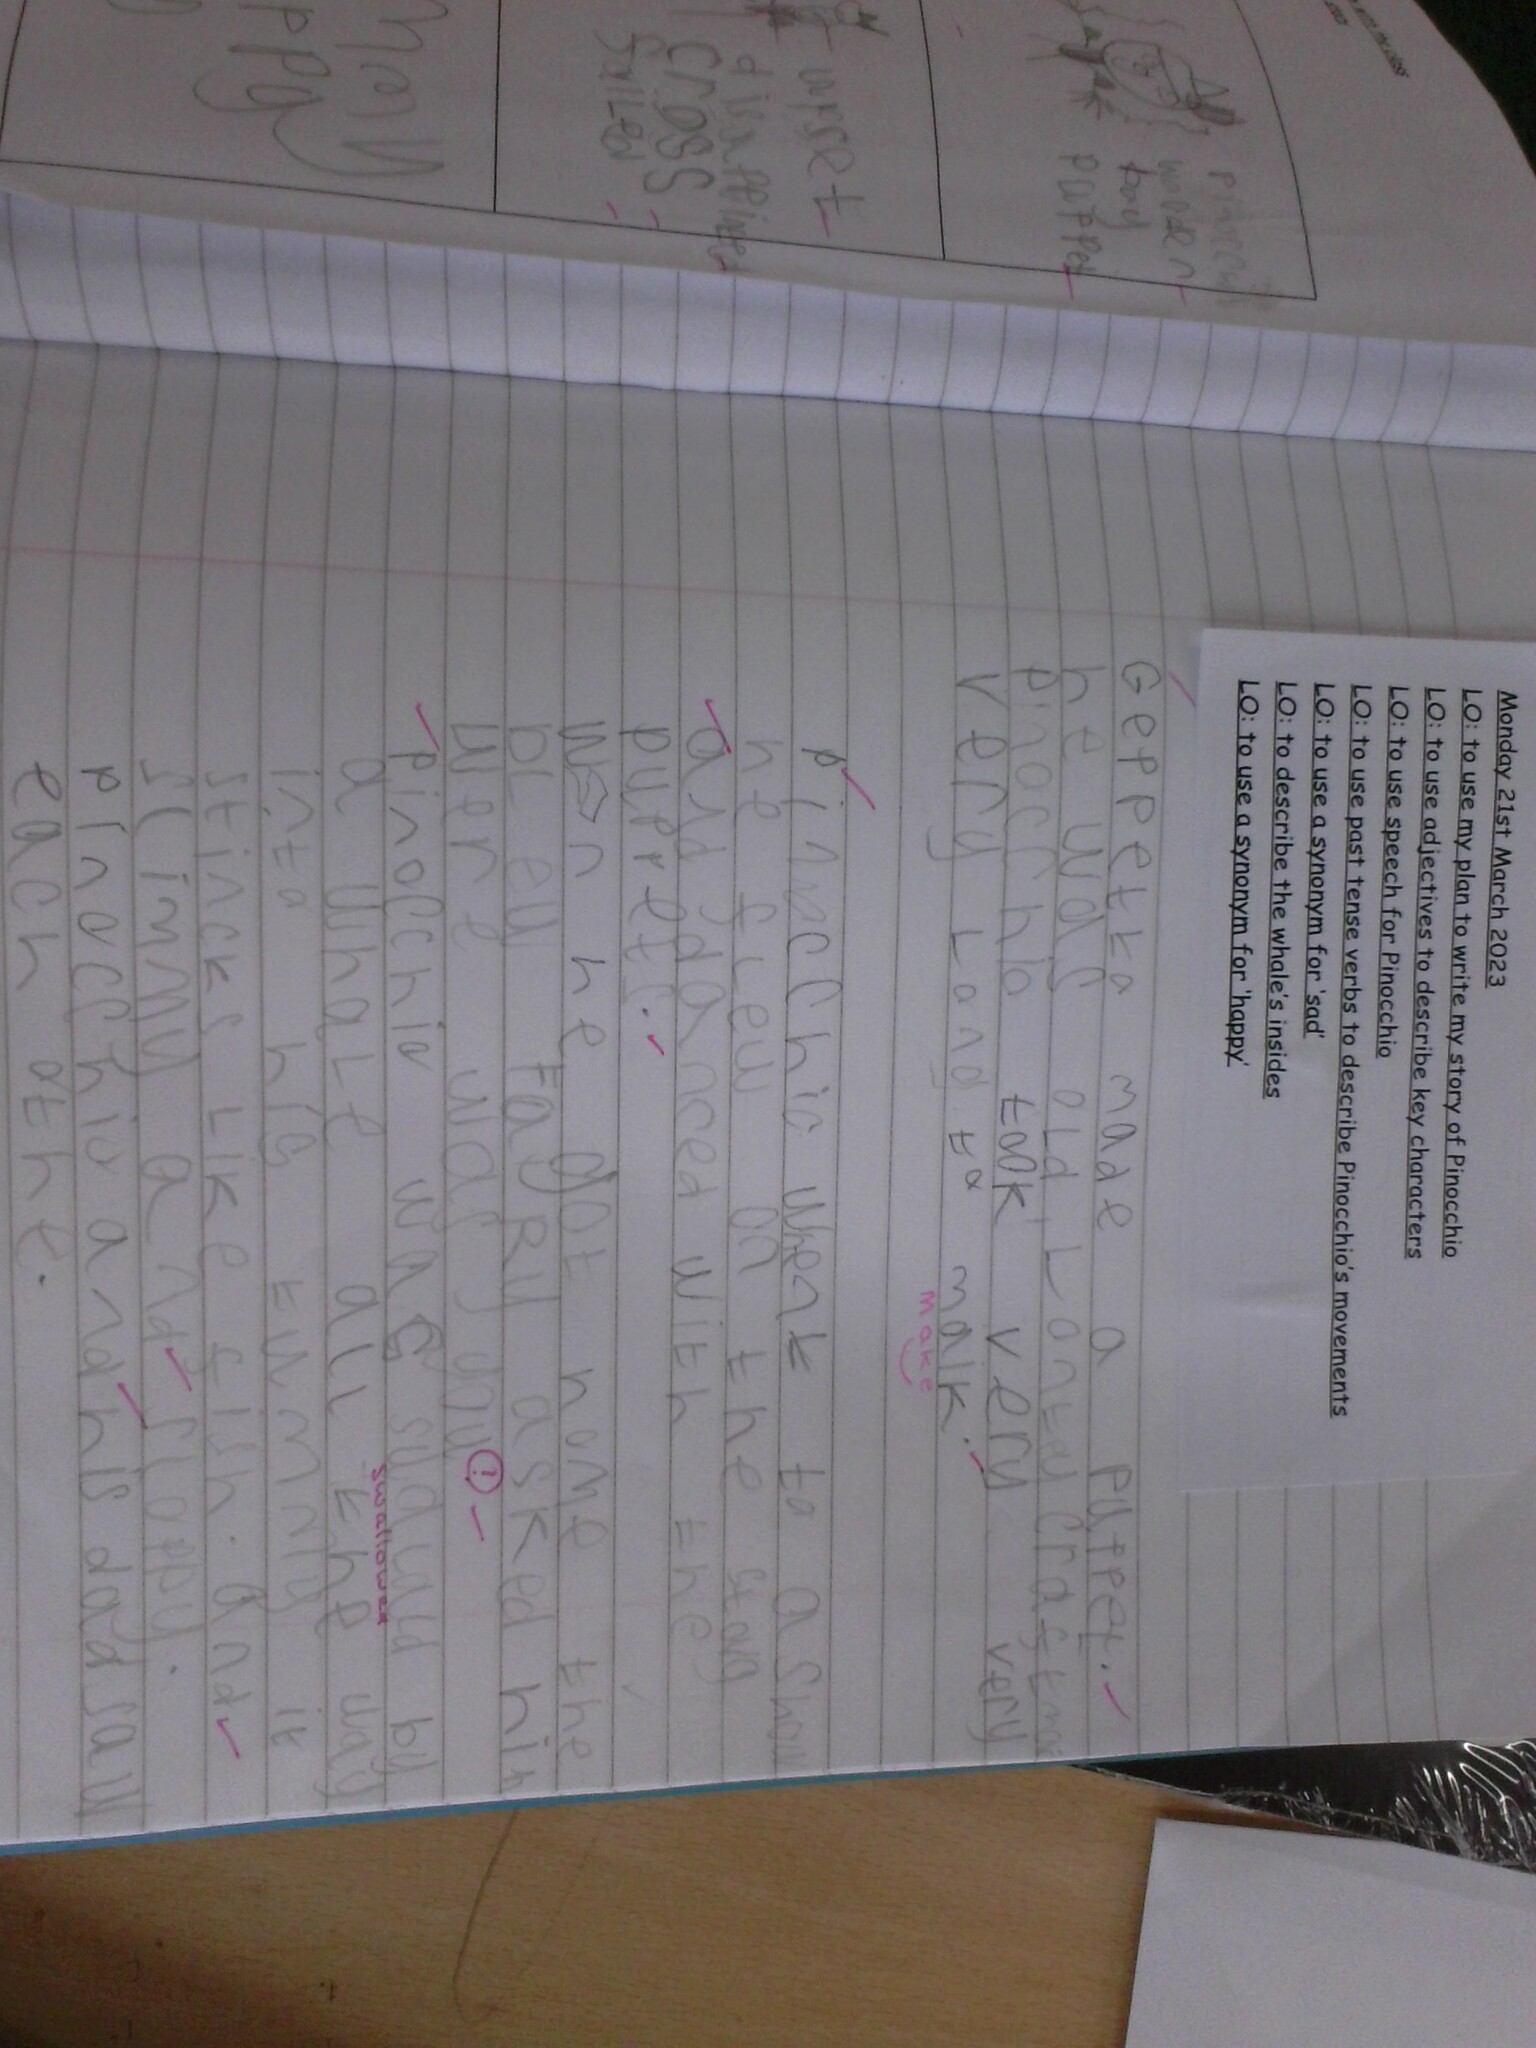 Monday 21st March 2023
LO: to use my plan to write my story of Pinocchio
LO: to use adjectives to describe key characters
LO: to use speech for Pinocchio
LO: to use past tense verbs to describe Pinocchio's movements
LO: to use a synonym for 'sad'
LO: to describe the whale's insides
LO: to use a synonym for 'happy'
Geppetto made a puppet.
he was old
Pinocchio took very very
very Long to maik.
make
Pinocchio whent to a Show
he flew on the stag
and danced with the
puppets.
he got home the
bleu fayRy asked hin
wery was you ?
Pinocchio was by
swallowed
a whale all the way
into his tummy it
stincks Like fish. and
slimmy and sloppy.
Pinocchio and his dad saw
each othe.
wooden
boy
puppet
cross